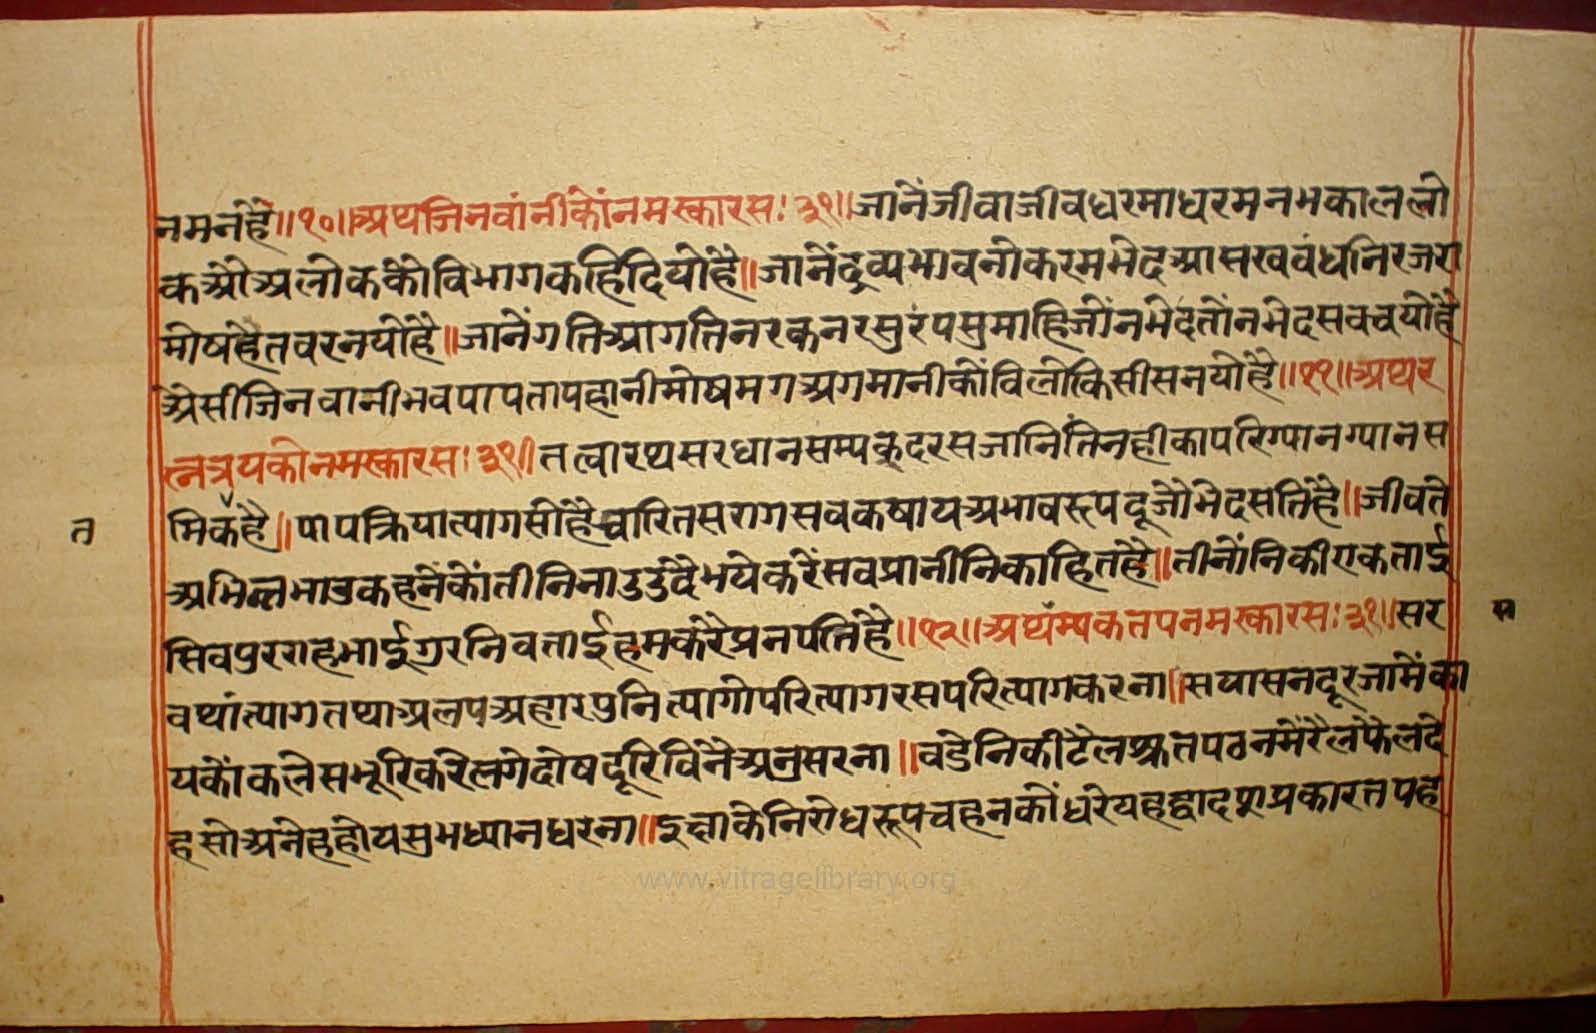 नमनहै॥१०॥अथजिनवांनीकौंनमस्कारसः३१॥जानैंजीवाजीवधरमाधरमनभकाललो
कऔअलोककौविभागकहिदियोहै॥जानेंद्रव्यभावनोकरमभेदआसरववंधनिरजरा
मोषहैतवरनयोहै॥जानेंगतिआगतिनरकनरसुरपसुमाहिजौंनभेदतौंनभेदसवचयोहै
ऐसीजिनवानीभवपापतापहानीमोषमगअगमानीकौंविलोकिसीसनयोहै॥११॥अथर
त्नत्रयकोनमस्कारसः३१॥तत्वारथसरधानसम्यकदरसजानितिनहीकापरिग्यानग्यानस
मिकहै॥पापक्रियात्यागसोहैचारितसरागसवकषायअभावरूपदूजोभेदसतिहै॥जीवते
त
अभिन्नभाउकहनेंकौंतीनिनाउउदैभयेकरेंसवप्रानीनिकाहितहै॥तीनौंनिकीएकताई
सिवपुरराहभाईगुरनिवताईहमकरैप्रनपतिहै॥१२॥अथंम्यकतपनमस्कारसः३१॥सर
स
वथांत्यागतथाअलपअहारपुनित्यागोपरित्यागरसपरित्यागकरना॥सयासनदूरजामेंका
यकौंकलेसभूरिकरैलगेदोषदूरिविनैअनुसरना॥वडेनिकीटैलश्रुतपठनमेंरैलफैलदे
हसोंअनेहहोयसुभध्यानधरना॥इछाकेनिरोधरूपचहनकौंधरेयहद्वादशप्रकारतपहै
www.vitragelibrary.org